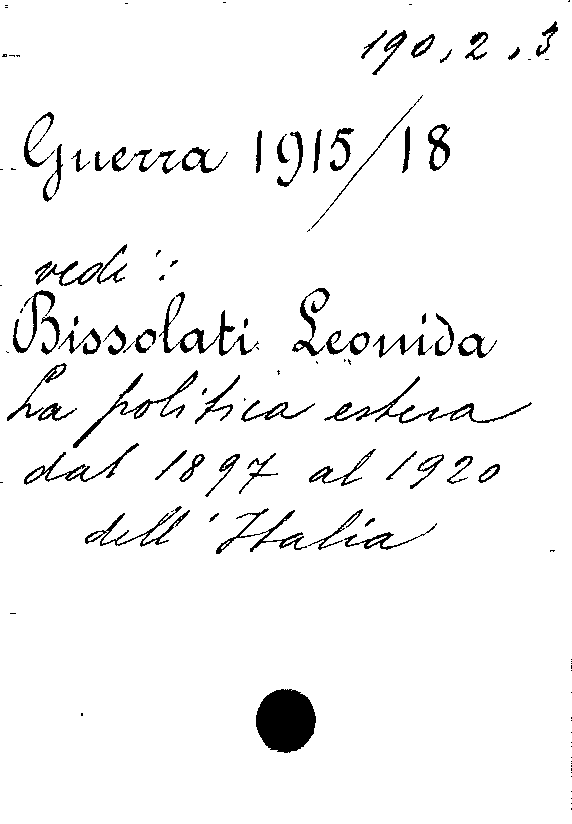 190, 2, 3
Guerra 1915/18
vedi:
Bissolati Leonida
La politica estera
dal 1897 al 1920
dell'Italia